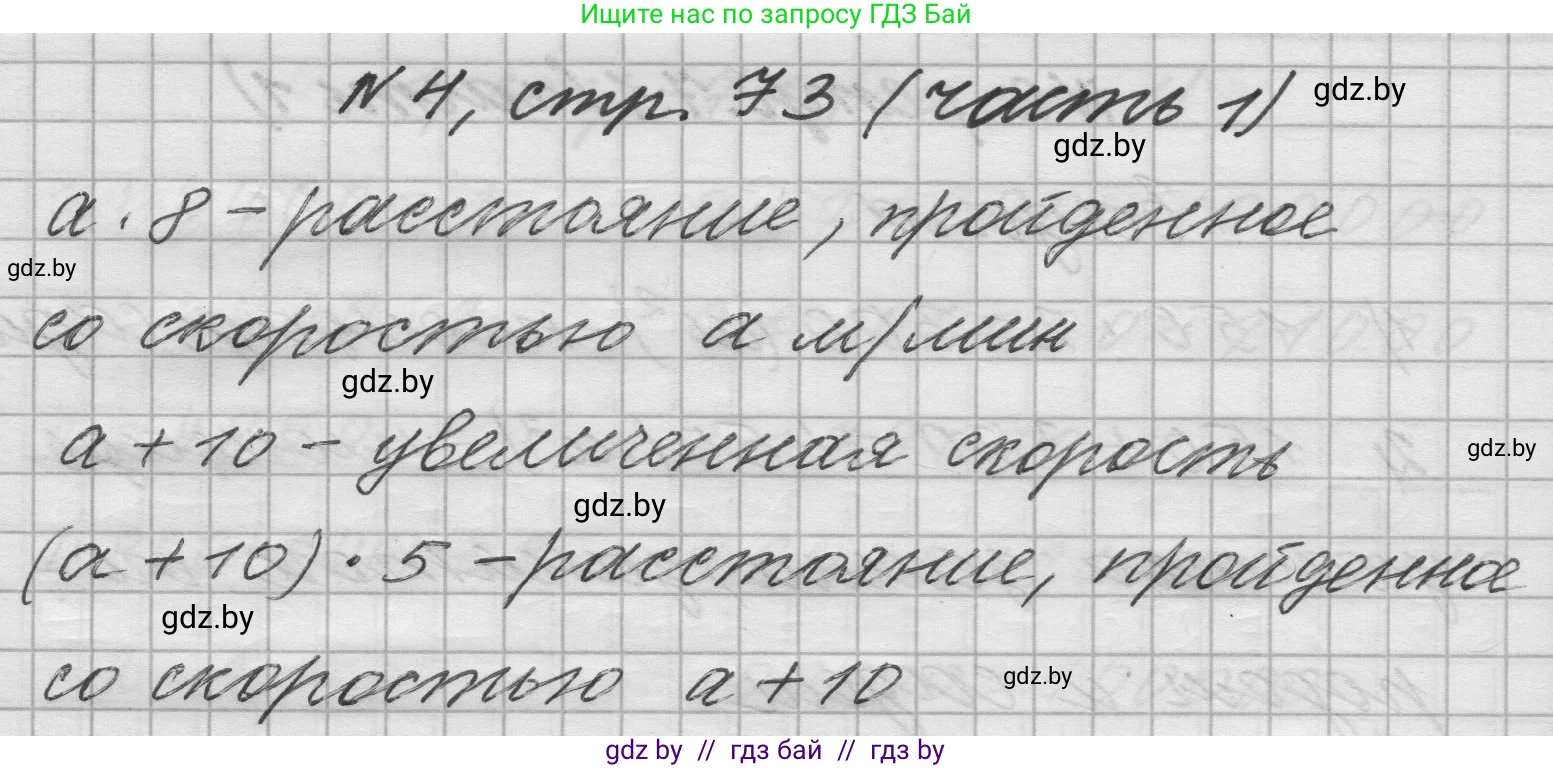 Ищите нас по запросу ГДЗ Бай
N 4, стр. 73 (часть 1) gdz.by
gdz.by
a · 8 - расстояние, пройденное
gdz.by
со скоростью a м/мин
gdz.by
a + 10 - увеличенная скорость gdz.by
gdz.by
(a + 10) · 5 - расстояние, пройденное
gdz.by
со скоростью a + 10 gdz.by
gdz by // гдз бай // гдз by